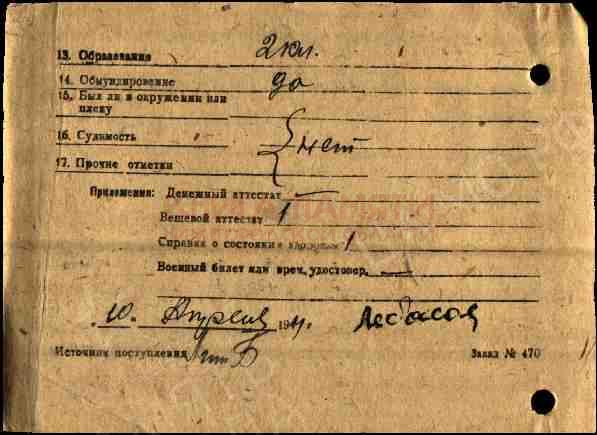 13. Образование 2 кл.
14. Обмундирование да
15. Был ли в окружении или
плену
16. Судимость нет
17. Прочие отметки
Приложения: Денежный аттестат —
Вещевой аттестат 1
Справка о состоянии 1
Военный билет или врем. удостовер. —
10 Апреля 194 г.
Источник поступления
Заказ № 470